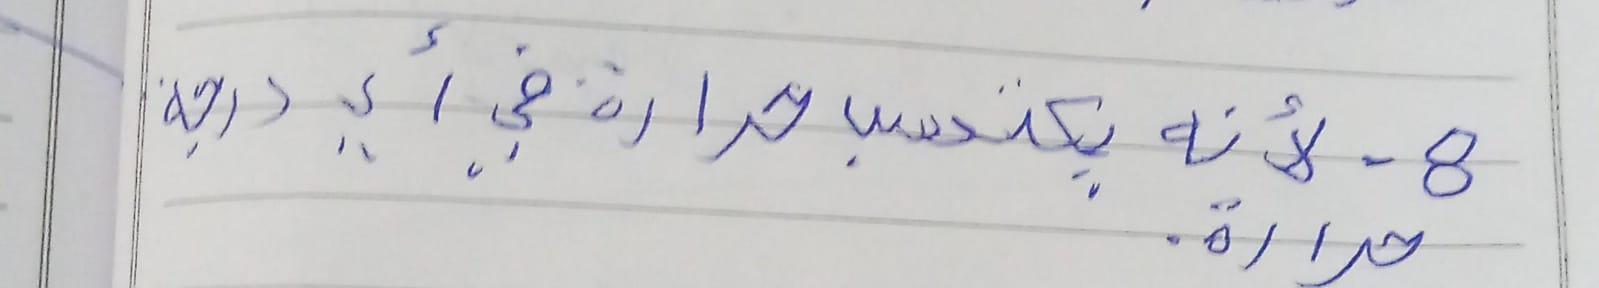 8- لأنه يكتسب حرارة في أي درجة
حرارة.